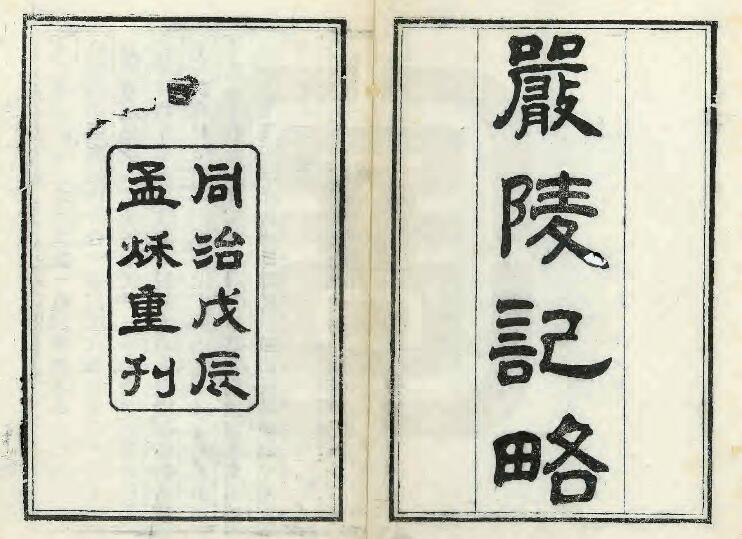 嚴陵記略
同治戊辰
孟秌重刊